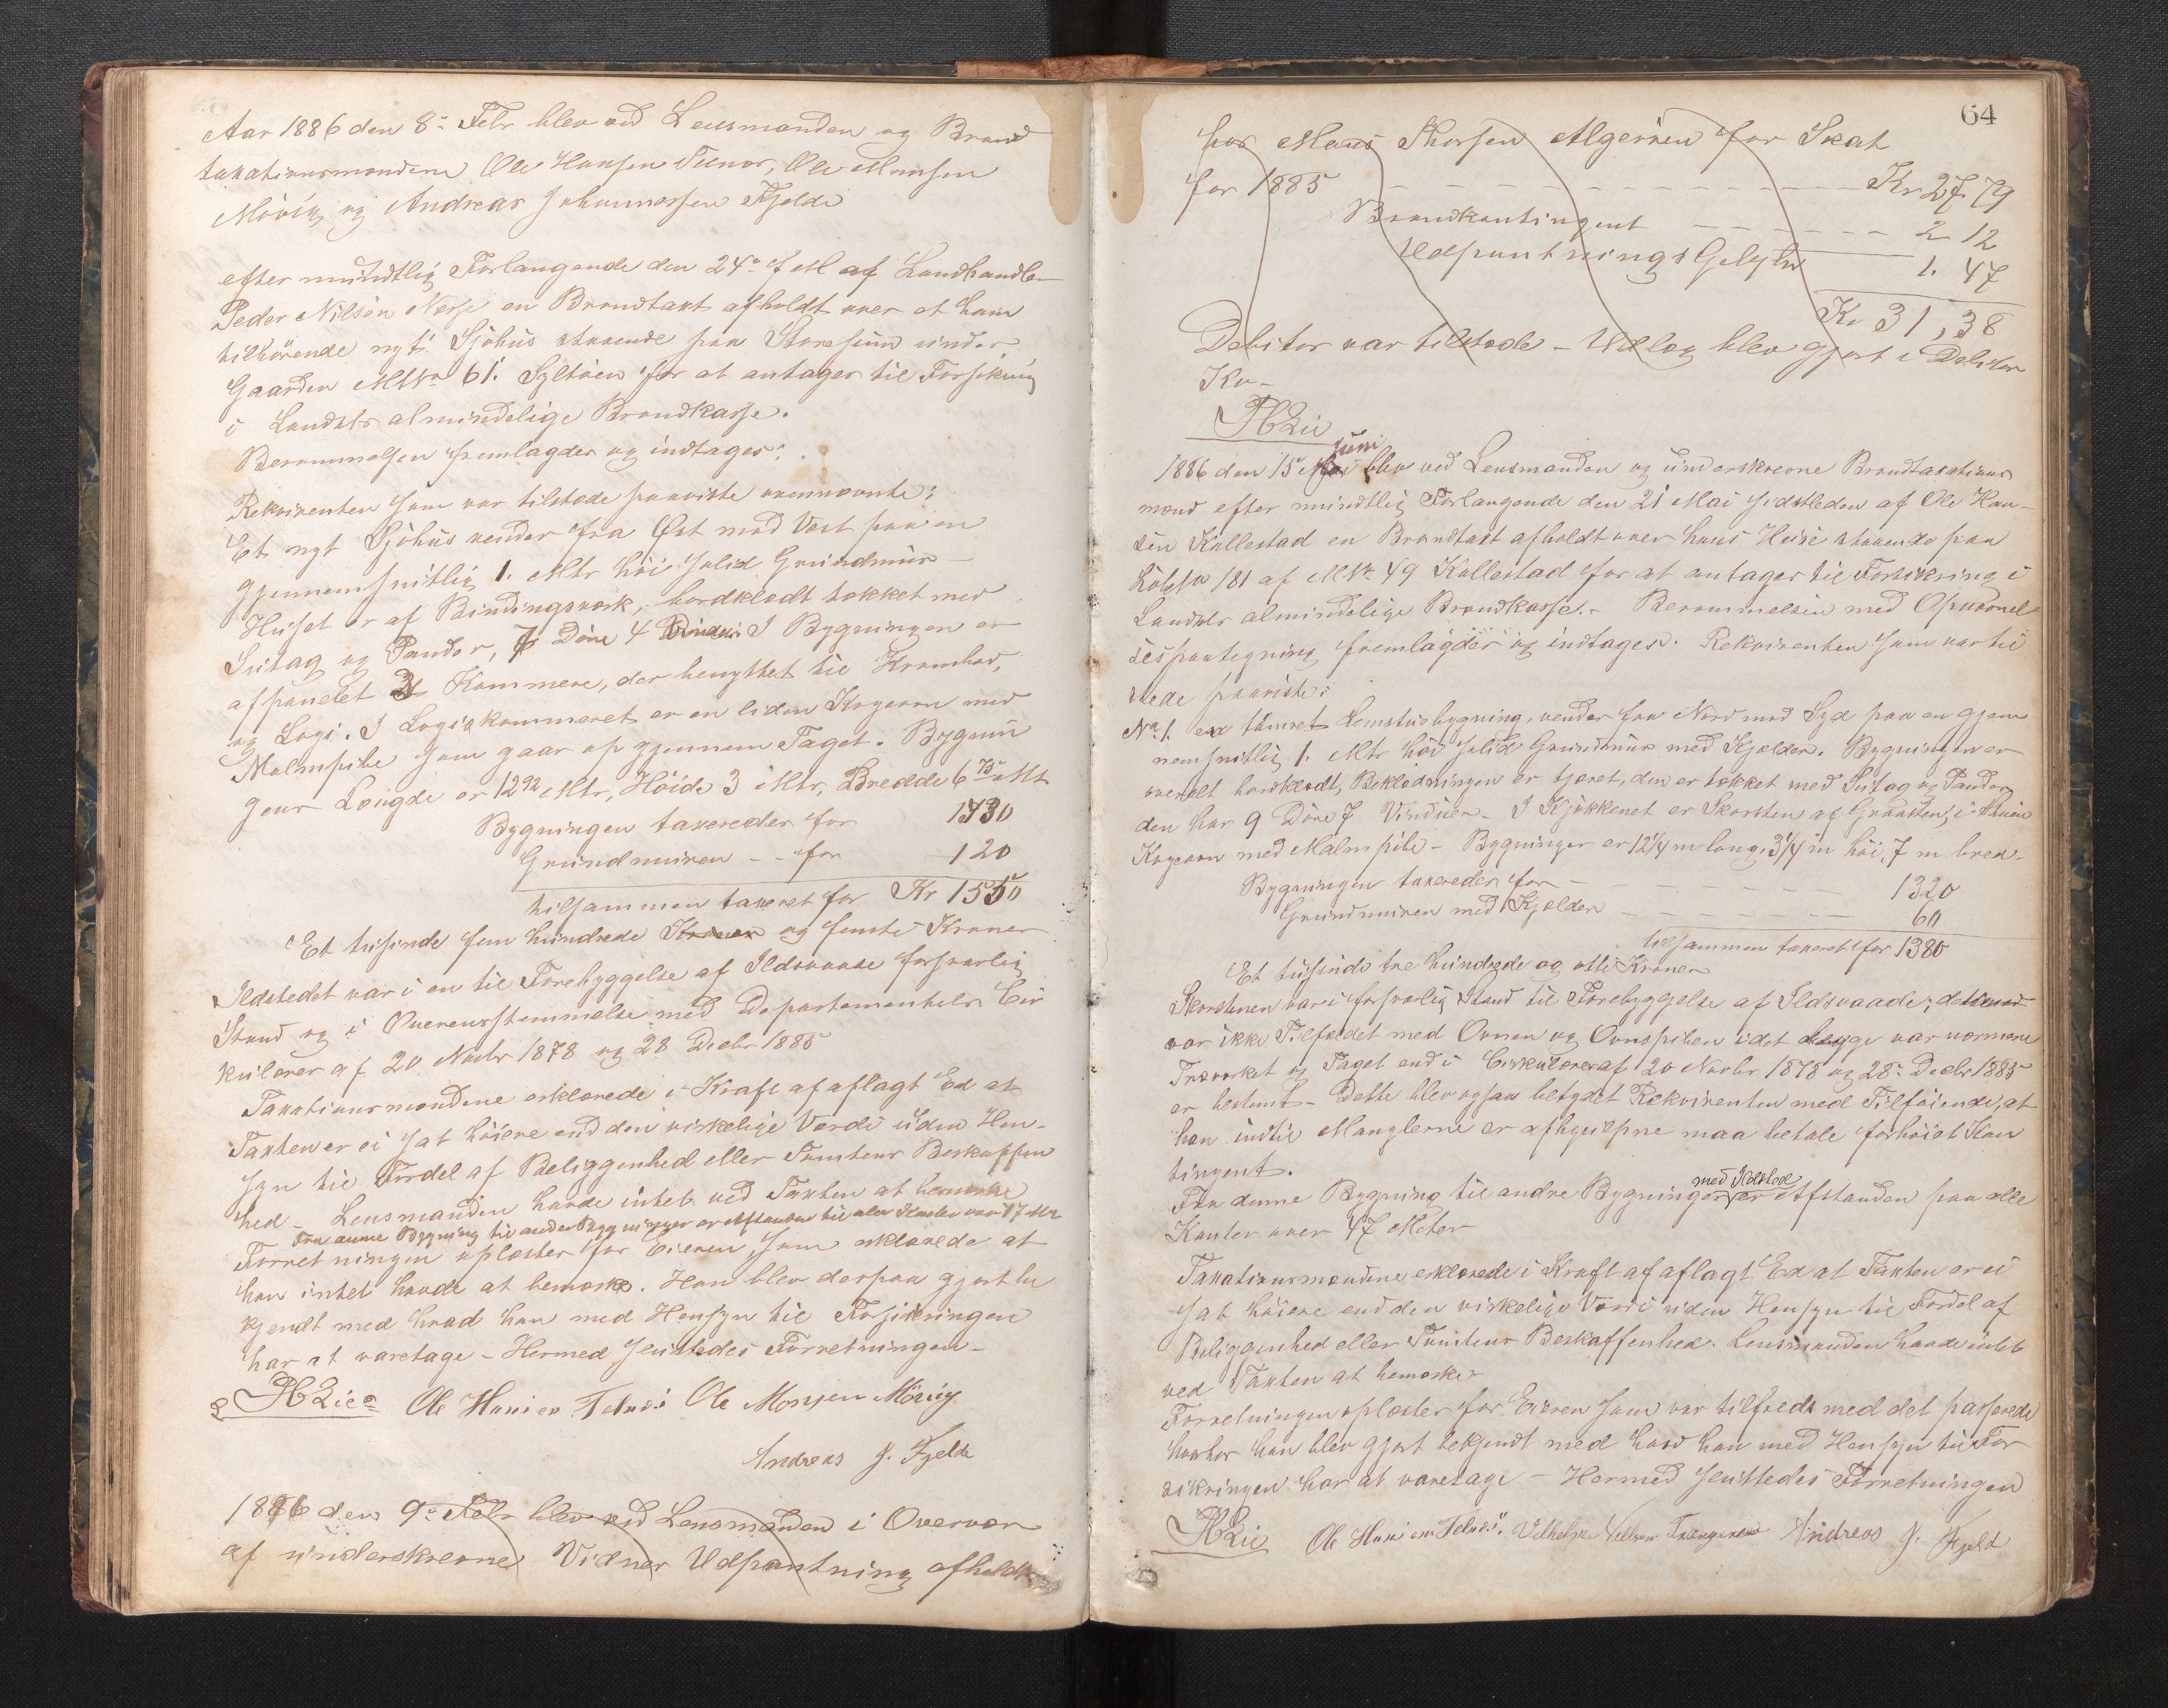 Aar 1886 den 8de Febr blev ved Lensmanden og Brand
taxationsmændene Ole Hansen Telnæs, Ole Monsen
Mövig og Andreas Johannessen Fjelde
efter mundtlig Forlangende den 24de f M af Landhandler
Peder Nilsen Nesse en Brandtaxt afholdt over et ham
tilhörende nyt Sjöhus staaende paa Storesund under
Gaarden MNo 61. Syltöen for at antages til Forsikring
i Landets almindelige Brandkasse.
Berammelsen fremlagdes og indtages:
Rekvirenten som var tilstede paaviste ovennævnte:
Et nyt Sjöhus vender fra Öst mod Vest paa en
gjennemsnitlig 1. Mtr höi solid Grundmur
Huset er af Bindingsværk, bordklædt tækket med
Sutag og Pander, 7 Döre 4 Vinduer I Bygningen er
afpanelet 2 Kammere, der benyttes til Krambod,
og Logi. I Logiskammeret er en liden Kogeovn med
Malmpibe som gaar op gjennem Taget. Bygnin
gens Længde er 12 92 Mtr, Höide 3 Mtr, Bredde 6 75 Mtr
Bygningen taxeredes for 1430
Grundmuren -- for 120
tilsammen taxeret for Kr 1550
Et tusinde fem hundrede Kroner og femti Kroner
Ildstedet var i en til Forebyggelse af Ildsvaade forsvarlig
Stand og i Overensstemmelse med Departementets Cir
kulærer af 20 Novbr 1878 og 28 Decbr 1885
Taxationsmændene erklærede i Kraft af aflagt Ed at
Taxten er ei sat höiere end den virkelige Værdi uden Hen-
syn til Fordel af Beliggenhed eller Tomtens Beskaffen
hed - Lensmanden havde intet ved Taxten at bemærke
Fra denne Bygning til andre Bygninger er Afstanden til alle Kanter over 17 Mtr
Forretningen oplæstes for Eieren, som erklærede at
han intet havde at bemærke. Han blev derpaa gjort be
kjendt med hvad han med Hensyn til Forsikringen
har at varetage - Hermed sluttedes Forretningen -
Ole Hansen Telnæs Ole Monsen Mövig
Andreas J. Fjelde
1886 den 9de Febr blev ved Lensmanden i Overvær
af underskrevne Vidner Udpantning afholdt
64
hos Mons Thorsen Algeröen for Skat
for 1885 - - - - Kr 27.79
Brandkontingent - - - - 2 12
Udpantnings Gebyhr 1. 47
Kr 31,38
Debitor var tilstede - Udlæg blev gjort i Debitors
Ko -
Juni
1886 den 15 Mai blev ved Lensmanden og underskrevne Brandtaxations
mænd efter mundtlig Forlangende den 21 Mai sidstleden af Ole Han-
sen Kallestad en Brandtaxt afholdt over hans Huse staaende paa
LöbNo 181 af MNo 49 Kallestad for at antages til Forsikring i
Landets almindelige Brandkasse. - Berammelsen med Opnævnel
sespaategning fremlagdes og indtages. Rekvirenten som var til
stede paaviste:
No 1. en tömret Lemstuebygning, vender fra Nord mod Syd paa en gjen
nemsnitlig 1. Mtr höi solid Grundmur med Kjælder. Bygningen er
overalt bordklædt, Beklædningen er tjæret, den er tækket med Sutag og Pander,
den har 9 Döre 7 Vinduer - I Kjökkenet er Skorsten af Graasten, i Stuen
Kogeovn med Malmpibe - Bygningen er 12 1/4 m lang, 3 1/4 m höi, 7 m bred.
Bygningen taxeredes for - - - - 1320
Grundmuren med Kjælder - - - - 60
tilsammen taxeret for 1380
Et tusinde tre hundrede og otti Kroner
Skorstenen var i forsvarlig Stand til Forebyggelse af Ildsvaade; dette
var ikke Tilfældet med Ovnen og Ovnspiben idet begge var nærmere
Træværket og Taget end i Cirkulærer af 20 Novbr 1878 og 28de Decbr 1885
er bestemt - Dette blev ogsaa betydet Rekvirenten med Tilföiende, at
han indtil Manglerne er afhjulpne maa betale forhöiet Kon
tingent.
med Ildsted
Fra denne Bygning til andre Bygninger er Afstanden paa alle
Kanter over 47 Meter
Taxationsmændene erklærede i Kraft af aflagt Ed at Taxten er ei
sat höiere end den virkelige Værdi uden Hensyn til Fordel af
Beliggenhed eller Tomtens Beskaffenhed. Lensmanden havde intet
ved Taxten at bemærke
Forretningen oplæstes for Eieren som var tilfreds med det passerede
hvorhos han blev gjort bekjendt med hvad han med Hensyn til For
sikringen har at varetage - Hermed sluttedes Forretningen
Ole Hansen Telnæs. Vilhelm Andreas J. Fjeld